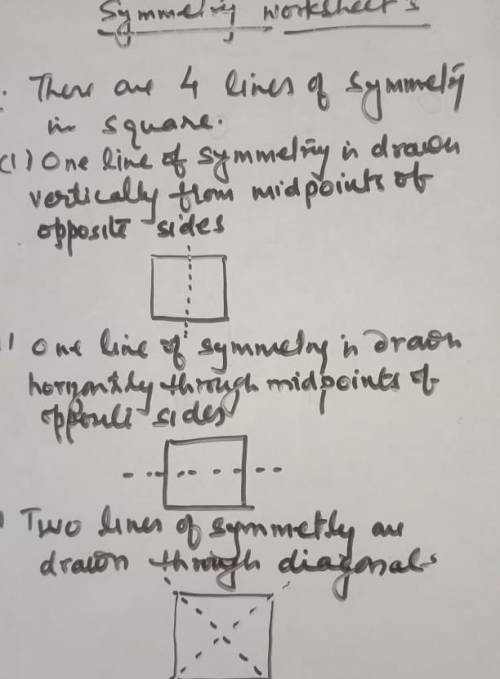 Symmetry worksheets
There are 4 lines of symmetry
in square.
(1) One line of symmetry is drawn
vertically from midpoints of
opposite sides
One line of symmetry is drawn
horizontlly through midpoints of
sides
Two lines of symmetry are
drawn through diagonals